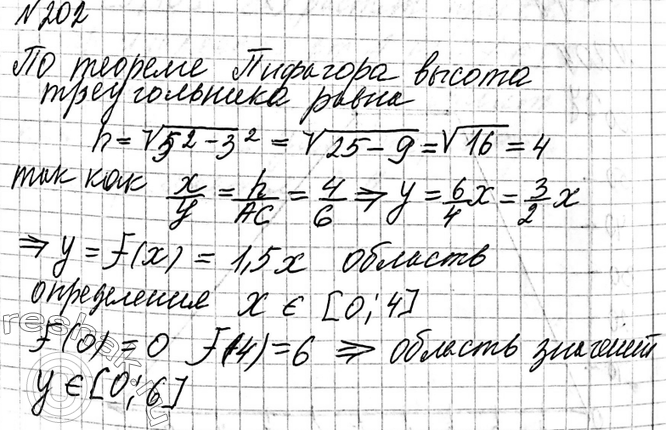 №202
По теореме Пифагора высота
треугольника равна
h = √5² - 3² = √25 - 9 = √16 = 4
так как x/y = h/AC = 4/6 ⇒ y = 6/4 x = 3/2 x
⇒ y = F(x) = 1,5x область
определения x ∈ [0; 4]
F(0) = 0 F(4) = 6 ⇒ область значений
y ∈ [0; 6]